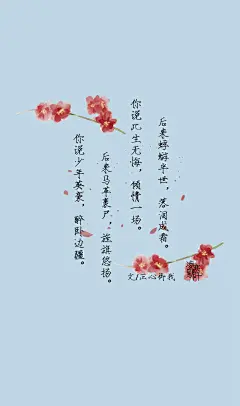 你说少年英豪，醉卧边疆。
后来马革裹尸，旌旗悠扬。
你说此生无悔，倾情一场。
后来蜉蝣半世，落润成霜。
文/正心御我